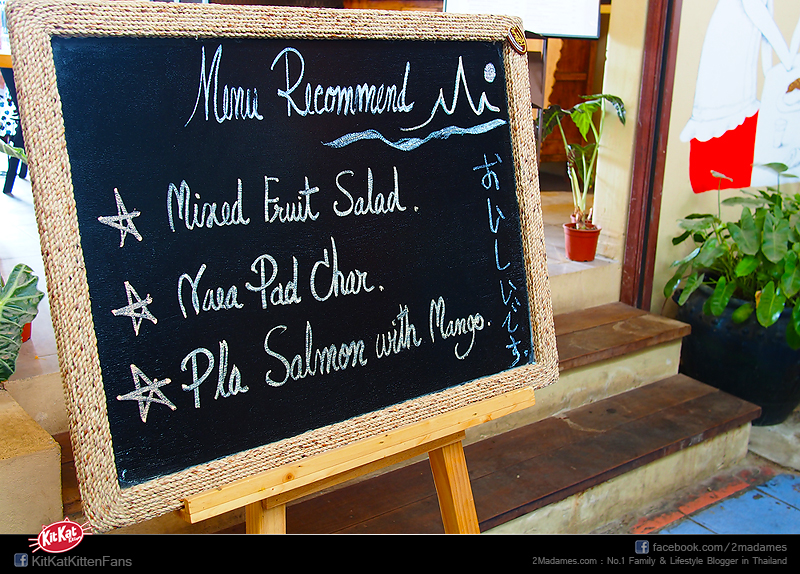 Menu Recommend
Mixed Fruit Salad.
Naea Pad Char.
Pla Salmon with Mango.
おいしいです。
KitKat
KitKatKittenFans
facebook.com/2madames
2Madames.com : No.1 Family & Lifestyle Blogger in Thailand